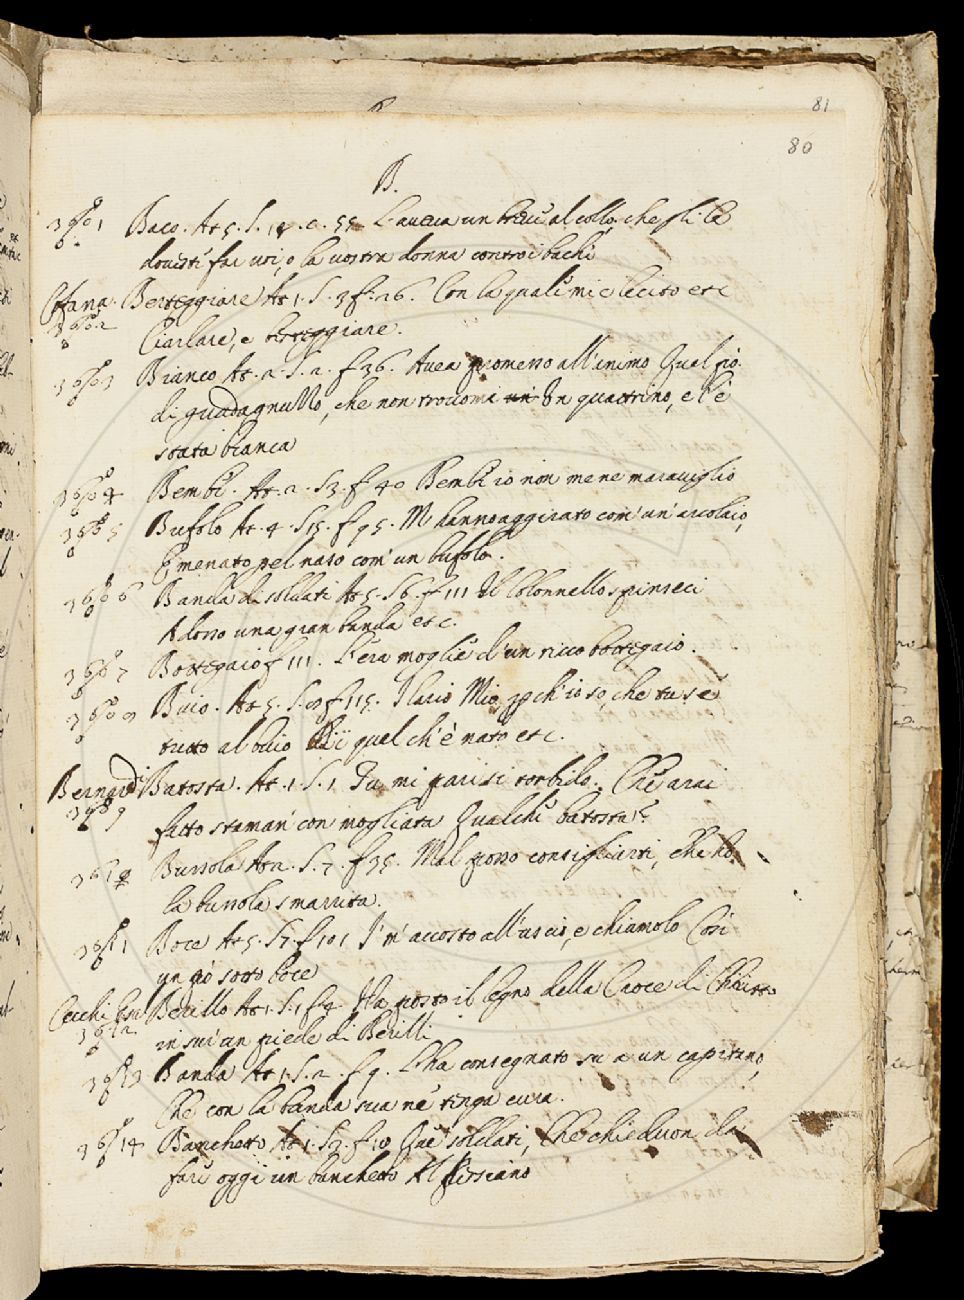 81
80
B.
3601 Baco. At 5. S. 14. c. 55 L'aveva un al collo, che gli le
dovesti far voi, o la vostra donna contro i bachi
Cofana. Berteggiare At 1. S. 3 f. 26. Con la quale mi è lecito etc
3602 Ciarlare, e berteggiare.
3603 Bianco At. 2. S. 2. f 36. Avea promesso all'animo Qualche
di guadagnuzzo, che non trovomi un quattrino, e l'è
stata bianca
3604 Bembè. At. 2. S 3. f 40 Bembè io non me ne maraviglio
3605 Bufolo At. 4. S 5. f 95. M'hanno aggirato com'un'arcolaio,
E menato pel naso com'un bufolo.
3606 Banda di soldati At 5. S 6. f 111 Il Colonnello spinseci
Adosso una gran banda etc.
3607 Bottegaio f 111. L'era moglie d'un ricco bottegaio.
Buio. At 5. S. f 115. Ilario Mio, ch'io so, che tu se
tutto al buio Di quel ch'è nato etc.
Bernard Batosta. At. 1. S. 1 Tu mi pari sì torbido. Che arai
3609 fatto staman' con mogliata Qualche batosta?
3610 Bussola At 2. S. 7. f 35. Mal posso consigliarti, che ho
la bussola smarrita.
3611 Boce At 5. S 7. f 101 I' m'accosto all'uscio, e chiamolo Così
un po' sotto boce
Cecchi Berillo At 1. S. 1 f 4 Ha posto il legno della Croce di Christo
3612 in su un piede di Berilli
3613 Banda At 1. S. 2. f 9. L'ha consegnato su a un capitano,
Che con la banda sua ne tenga cura.
3614 Bancheto At 1. S 3. f 10 Que' soldati, Che chiedevon da
fare oggi un bancheto Al